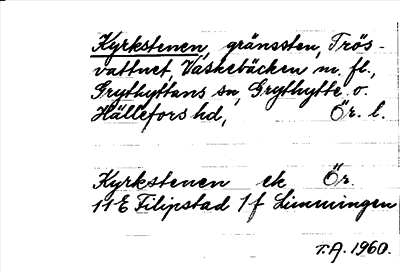 Kyrkstenen, gränssten, Trös-
vattnet, Väskebäcken m. fl.,
Grythyttans sn, Grythytte o.
Hällefors hd, Ör. l.
Kyrkstenen ek Ör.
11E Filipstad 1f Limmingen
T.A. 1960.